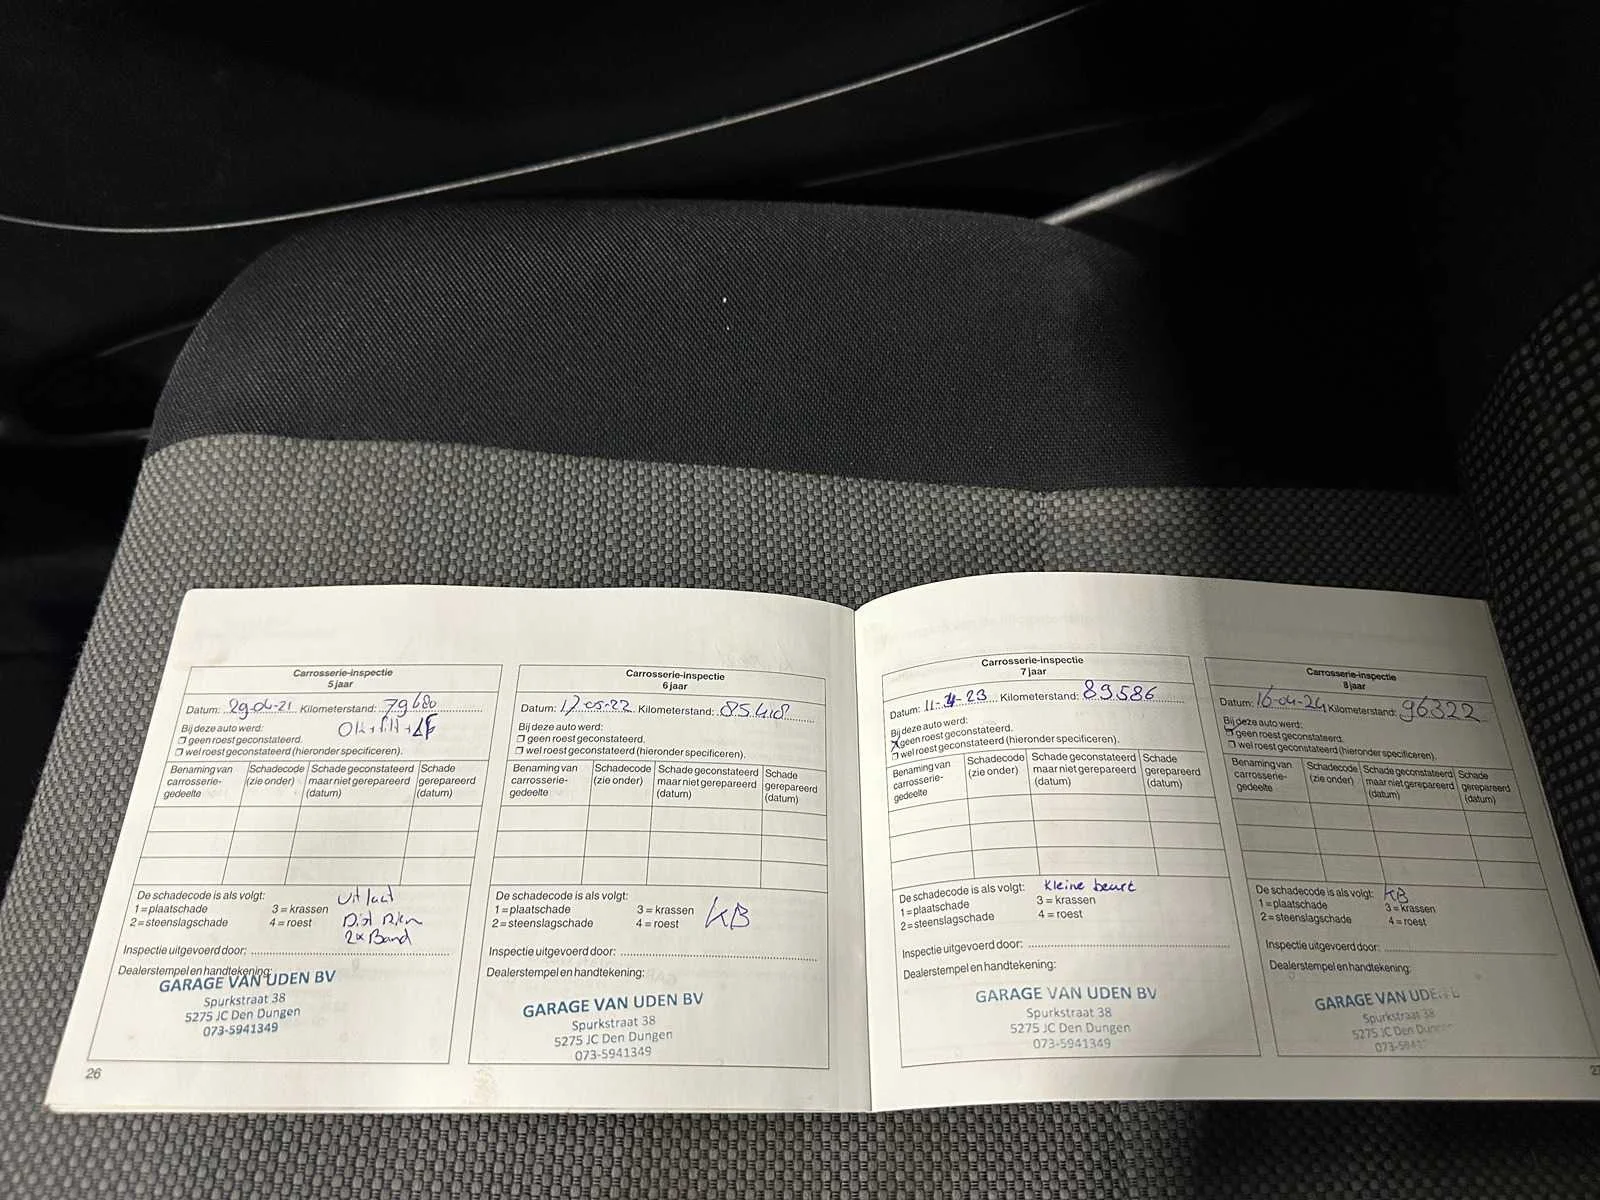 Carrosserie-inspectie
5 jaar
Datum: 29-04-21 Kilometerstand: 79680
Bij deze auto werd:
❒ geen roest geconstateerd.
❒ wel roest geconstateerd (hieronder specificeren).
Benaming van carrosserie-gedeelte Schadecode (zie onder) Schade geconstateerd maar niet gerepareerd (datum) Schade gerepareerd (datum)
De schadecode is als volgt: Uitlaat
1 = plaatschade 3 = krassen
2 = steenslagschade 4 = roest
2x Band
Inspectie uitgevoerd door:
Dealerstempel en handtekening:
GARAGE VAN UDEN BV
Spurkstraat 38
5275 JC Den Dungen
073-5941349
26
Carrosserie-inspectie
6 jaar
Datum: 17-05-22 Kilometerstand: 85418
Bij deze auto werd:
❒ geen roest geconstateerd.
❒ wel roest geconstateerd (hieronder specificeren).
Benaming van carrosserie-gedeelte Schadecode (zie onder) Schade geconstateerd maar niet gerepareerd (datum) Schade gerepareerd (datum)
De schadecode is als volgt:
1 = plaatschade 3 = krassen KB
2 = steenslagschade 4 = roest
Inspectie uitgevoerd door:
Dealerstempel en handtekening:
GARAGE VAN UDEN BV
Spurkstraat 38
5275 JC Den Dungen
073-5941349
Carrosserie-inspectie
7 jaar
Datum: 11-4-23 Kilometerstand: 89.586
Bij deze auto werd:
X geen roest geconstateerd.
❒ wel roest geconstateerd (hieronder specificeren).
Benaming van carrosserie-gedeelte Schadecode (zie onder) Schade geconstateerd maar niet gerepareerd (datum) Schade gerepareerd (datum)
De schadecode is als volgt: Kleine beurt
1 = plaatschade 3 = krassen
2 = steenslagschade 4 = roest
Inspectie uitgevoerd door:
Dealerstempel en handtekening:
GARAGE VAN UDEN BV
Spurkstraat 38
5275 JC Den Dungen
073-5941349
Carrosserie-inspectie
8 jaar
Datum: 16-04-24 Kilometerstand: 96322
Bij deze auto werd:
❒ geen roest geconstateerd.
❒ wel roest geconstateerd (hieronder specificeren).
Benaming van carrosserie-gedeelte Schadecode (zie onder) Schade geconstateerd maar niet gerepareerd (datum) Schade gerepareerd (datum)
De schadecode is als volgt: KB
1 = plaatschade 3 = krassen
2 = steenslagschade 4 = roest
Inspectie uitgevoerd door:
Dealerstempel en handtekening:
GARAGE VAN UDEN
Spurkstraat 38
5275 JC Den Dungen